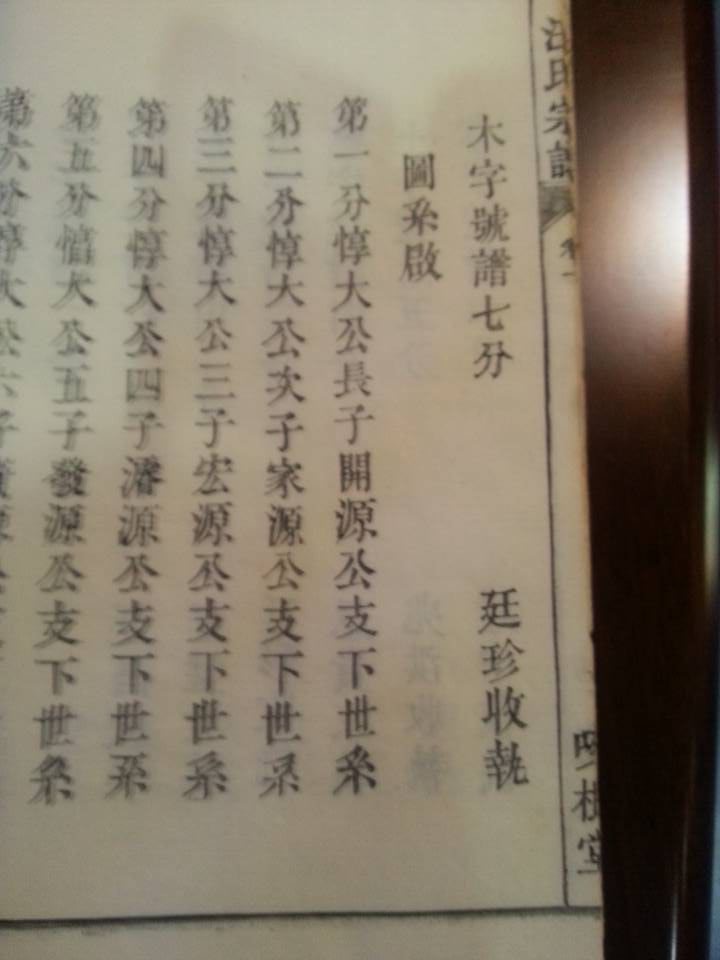 汪氏宗譜 卷一
木字號譜七分 廷珍收執
圖系啟
第一分惇大公長子開源公支下世系
第二分惇大公次子家源公支下世系
第三分惇大公三子宏源公支下世系
第四分惇大公四子濬源公支下世系
第五分惇大公五子發源公支下世系
第六分惇大公六子源